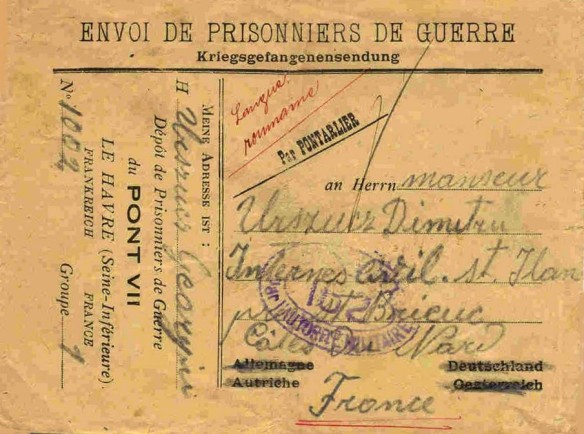 ENVOI DE PRISONNIERS DE GUERRE
Kriegsgefangenensendung
MEINE ADRESSE IST :
H Urszucz Georgiu
Dépôt de Prisonniers de Guerre
du PONT VII
LE HAVRE (Seine-Inférieure).
FRANKREICH FRANCE
No 1002 Groupe 1
Langue
roumaine
Par PONTARLIER
an Herrn manseur
Urszucz Dimitru
Internes Civil. st. Ilan
St Brieuc
Côtes du Nord
Allemagne Deutschland
Autriche Oesterreich
France